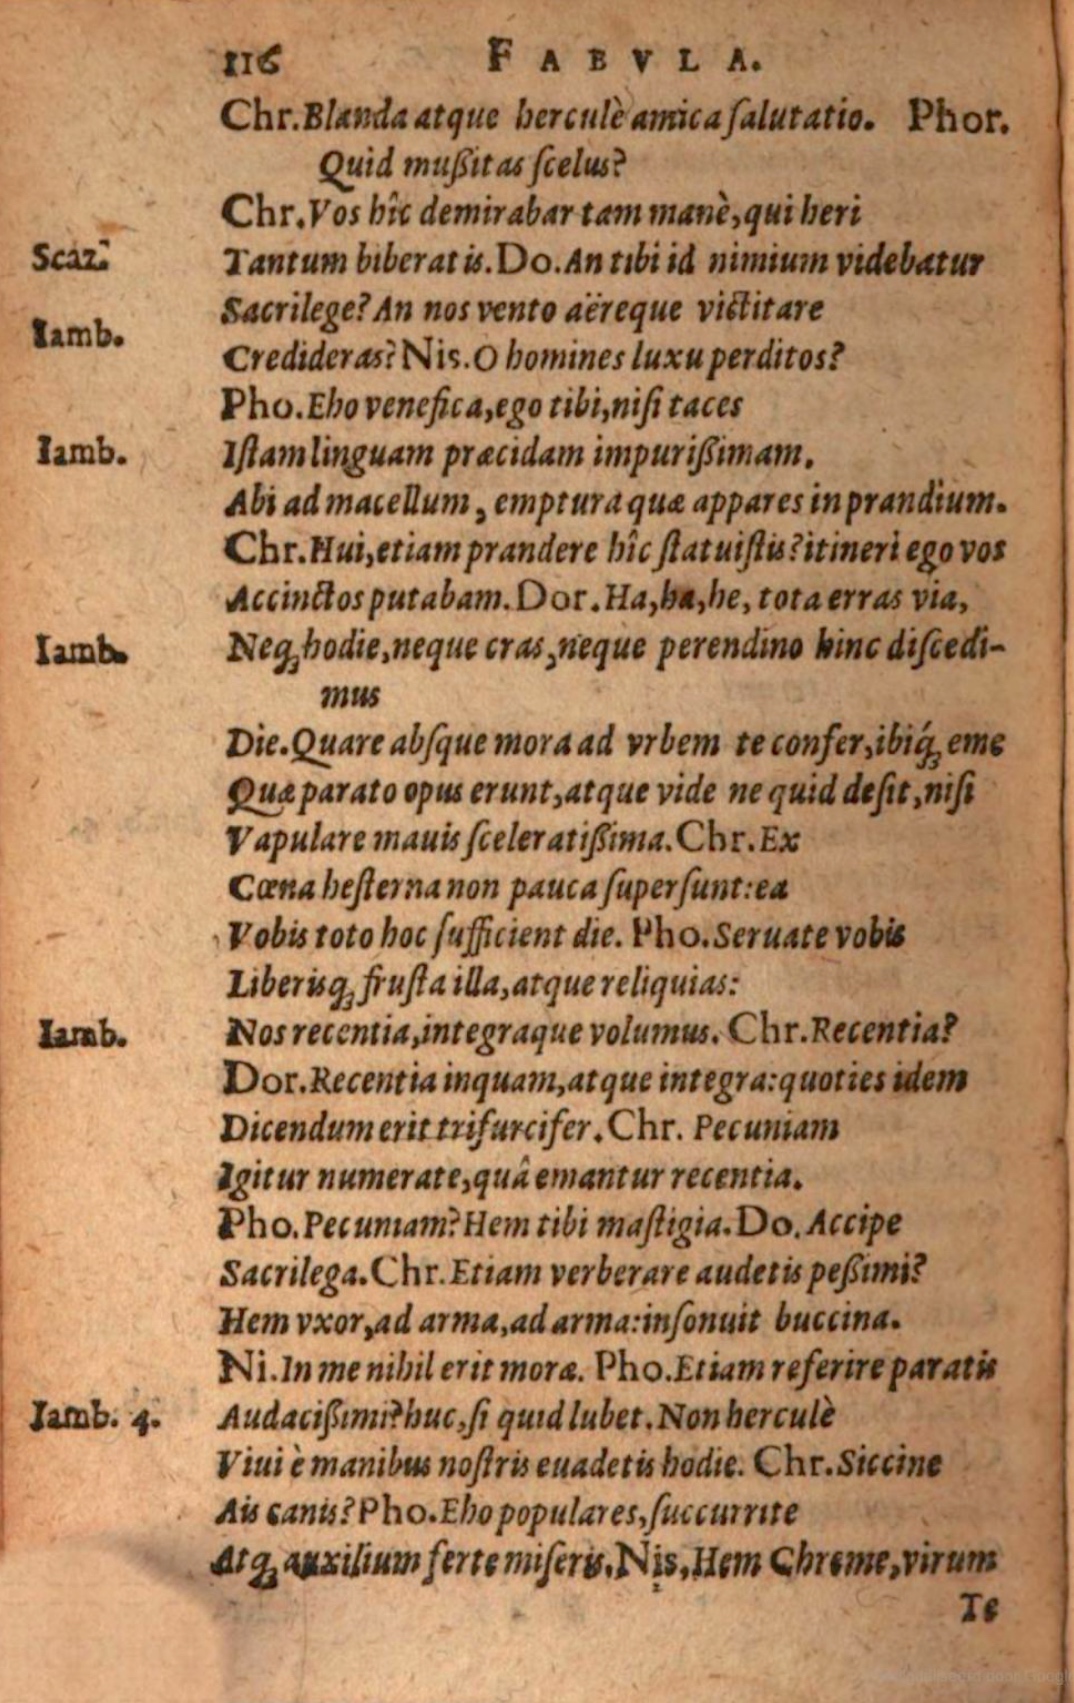 116 FABVLA.
Chr. Blanda atque herculè amica ſalutatio. Phor.
Quid mußitas ſcelus?
Chr. Vos hîc demirabar tam manè, qui heri
Scaz. Tantum biberatis. Do. An tibi id nimium videbatur
Sacrilege? An nos vento aëreque victitare
Iamb. Credideras? Nis. O homines luxu perditos?
Pho. Eho venefica, ego tibi, niſi taces
Iamb. Iſtam linguam præcidam impurißimam.
Abi ad macellum, emptura quæ appares in prandium.
Chr. Hui, etiam prandere hîc ſtatuiſtis? itineri ego vos
Accinctos putabam. Dor. Ha, ha, he, tota erras via,
Iamb. Neq; hodie, neque cras, neque perendino hinc diſcedi-
mus
Die. Quare abſque mora ad vrbem te confer, ibiq́; eme
Quæ parato opus erunt, atque vide ne quid deſit, niſi
Vapulare mauis ſceleratißima. Chr. Ex
Cœna heſterna non pauca ſuperſunt: ea
Vobis toto hoc ſufficient die. Pho. Seruate vobis
Liberisq; fruſta illa, atque reliquias:
Iamb. Nos recentia, integraque volumus. Chr. Recentia?
Dor. Recentia inquam, atque integra: quoties idem
Dicendum erit trifurcifer. Chr. Pecuniam
Igitur numerate, quâ emantur recentia.
Pho. Pecuniam? Hem tibi maſtigia. Do. Accipe
Sacrilega. Chr. Etiam verberare audetis peßimi?
Hem vxor, ad arma, ad arma: inſonuit buccina.
Ni. In me nihil erit moræ. Pho. Etiam referire paratis
Iamb. 4. Audacißimi? huc, ſi quid lubet. Non herculè
Viui è manibus noſtris euadetis hodie. Chr. Siccine
Ais canis? Pho. Eho populares, ſuccurrite
Atq; auxilium ferte miſeris. Nis. Hem Chreme, virum
Te